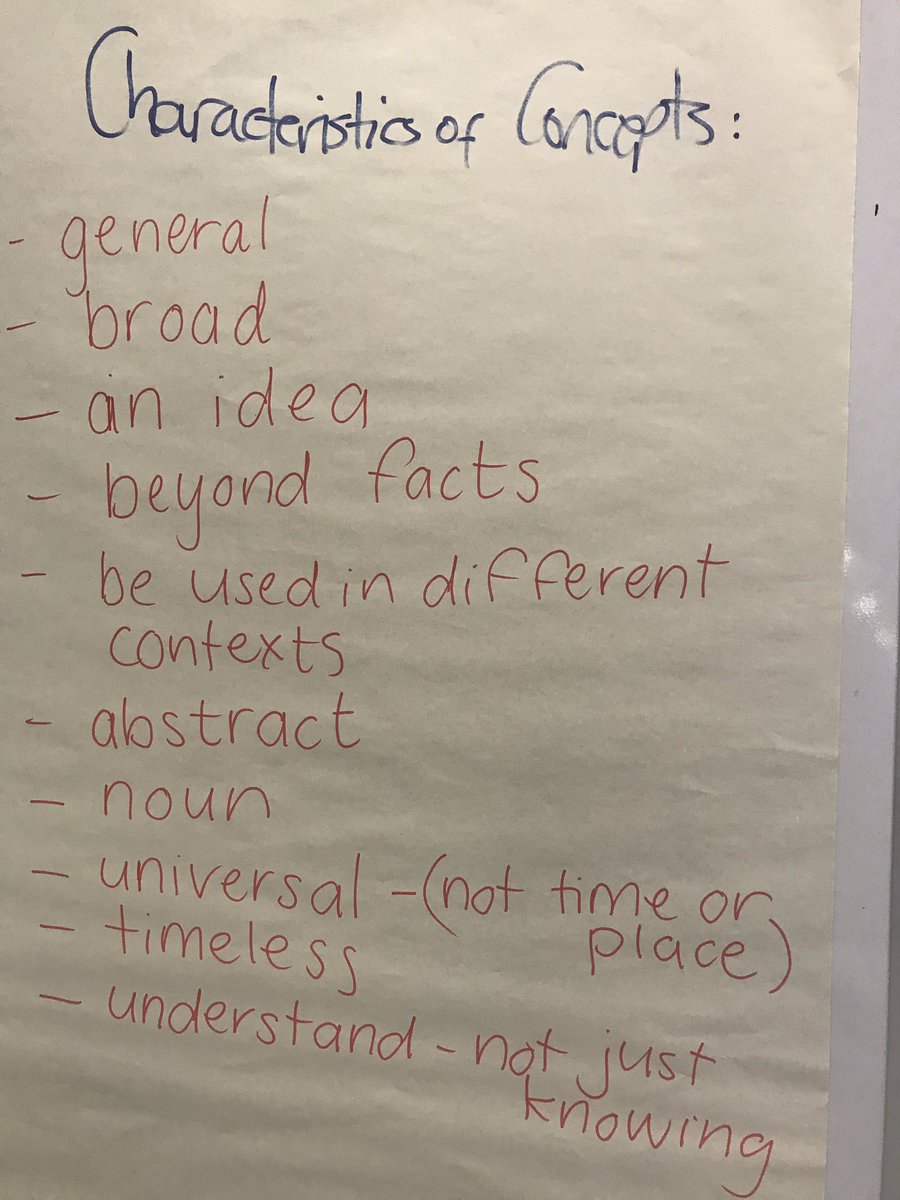 Characteristics of Concepts:
- general
- broad
- an idea
- beyond facts
- be used in different
contexts
- abstract
- noun
- universal - (not time or
place)
- timeless
- understand - not just
knowing